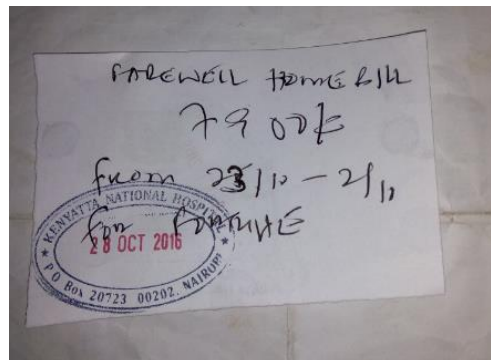 FAREWELL HOME BILL
7900/=
from 23/10 - 2/11
for FORTUNE
KENYATTA NATIONAL HOSPITAL
28 OCT 2016
P O Box 20723 00202. NAIROBI